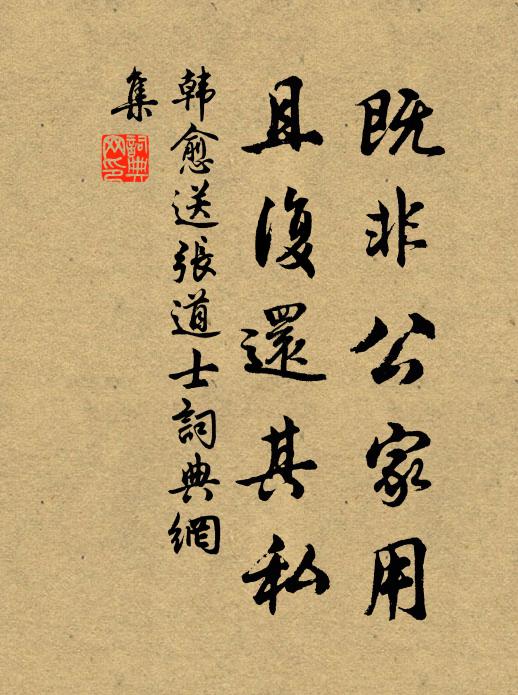 既非公家用
且復還其私
韓愈送張道士詞典網
集
詞典網印